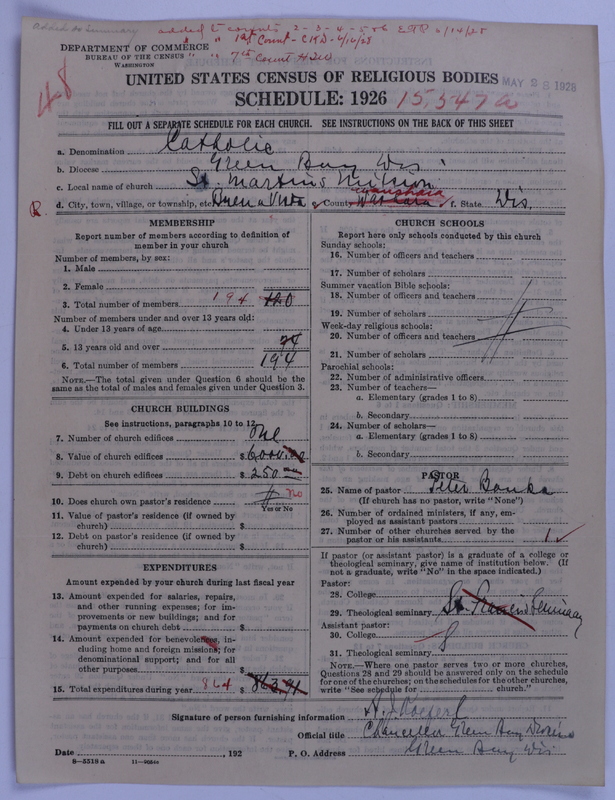 added to Summary
added to counts 2-3-4-5-6 6/14/28
" " 1st Count - CKD - 6/16/28
" " 7th Count
DEPARTMENT OF COMMERCE
BUREAU OF THE CENSUS
WASHINGTON
48
UNITED STATES CENSUS OF RELIGIOUS BODIES
MAY 28 1928
SCHEDULE: 1926
15,547a
FILL OUT A SEPARATE SCHEDULE FOR EACH CHURCH. SEE INSTRUCTIONS ON THE BACK OF THIS SHEET
a. Denomination Catholic
b. Diocese Green Bay Wis.
c. Local name of church St. Martins Mission
R.
d. City, town, village, or township, etc. Buena Vista e. County Waushara f. State Wis.
MEMBERSHIP
Report number of members according to definition of
member in your church
Number of members, by sex:
1. Male
2. Female
3. Total number of members 194 120
Number of members under and over 13 years old:
4. Under 13 years of age
5. 13 years old and over 74
6. Total number of members 194
NOTE.—The total given under Question 6 should be the
same as the total of males and females given under Question 3.
CHURCH BUILDINGS
See instructions, paragraphs 10 to 12
7. Number of church edifices One
8. Value of church edifices $ 6000.00
9. Debt on church edifices $ 250
10. Does church own pastor's residence no
Yes or No
11. Value of pastor's residence (if owned by
church) $
12. Debt on pastor's residence (if owned by
church) $
EXPENDITURES
Amount expended by your church during last fiscal year
13. Amount expended for salaries, repairs,
and other running expenses; for im-
provements or new buildings; and for
payments on church debt $
14. Amount expended for benevolences, in-
cluding home and foreign missions; for
denominational support; and for all
other purposes $
15. Total expenditures during year 864 $ 863.91
CHURCH SCHOOLS
Report here only schools conducted by this church
Sunday schools:
16. Number of officers and teachers
17. Number of scholars
Summer vacation Bible schools:
18. Number of officers and teachers
19. Number of scholars
Week-day religious schools:
20. Number of officers and teachers
21. Number of scholars
Parochial schools:
22. Number of administrative officers
23. Number of teachers—
a. Elementary (grades 1 to 8)
b. Secondary
24. Number of scholars—
a. Elementary (grades 1 to 8)
b. Secondary
PASTOR
25. Name of pastor Peter Bonka
(If church has no pastor, write "None")
26. Number of ordained ministers, if any, em-
ployed as assistant pastors
27. Number of other churches served by the
pastor or his assistants 1
If pastor (or assistant pastor) is a graduate of a college or
theological seminary, give name of institution below. (If
not a graduate, write "No" in the space indicated.)
Pastor:
28. College
29. Theological seminary St. Francis Seminary
Assistant pastor:
30. College
31. Theological seminary
NOTE.—Where one pastor serves two or more churches,
Questions 28 and 29 should be answered only on the schedule
for one of the churches; on the schedules for the other churches,
write "See schedule for church."
Signature of person furnishing information
Official title Chancellor Green Bay Diocese
Date , 192 P. O. Address Green Bay Wis
8—5518a 11—9054a